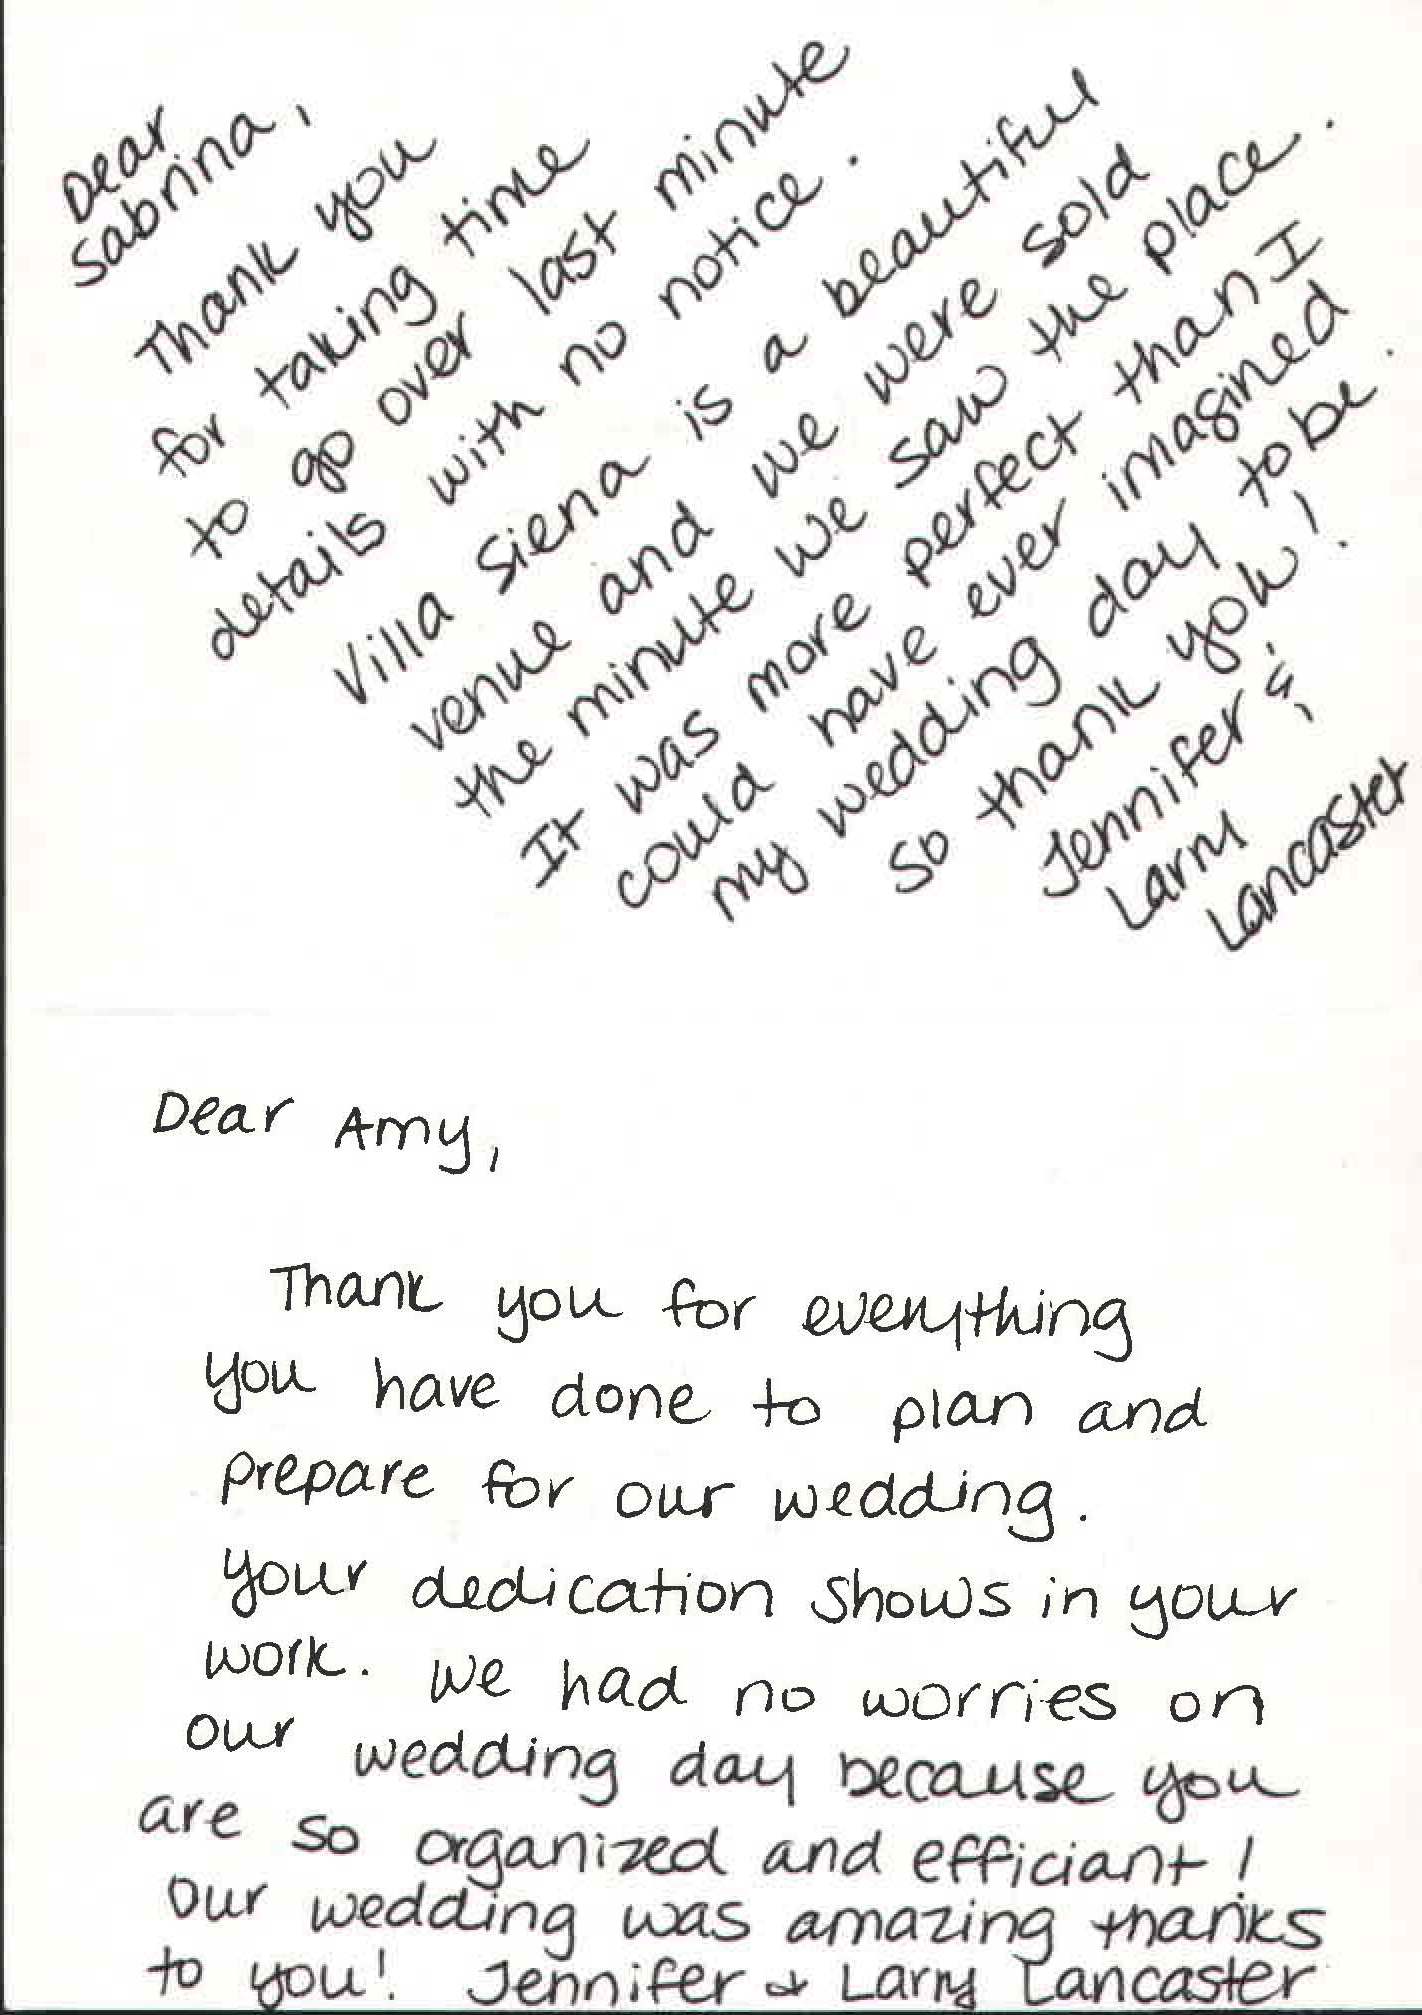 Dear
Sabrina,
Thank you
for taking time
to go over last minute
details with no notice.
Villa Siena is a beautiful
venue and we were sold
the minute we saw the place.
It was more perfect than I
could have ever imagined
my wedding day to be.
So thank you!
Jennifer &
Larry
Lancaster
Dear Amy,
Thank you for everything
you have done to plan and
prepare for our wedding.
Your dedication shows in your
work. We had no worries on
our wedding day because you
are so organized and efficiant!
Our wedding was amazing thanks
to you! Jennifer & Larry Lancaster